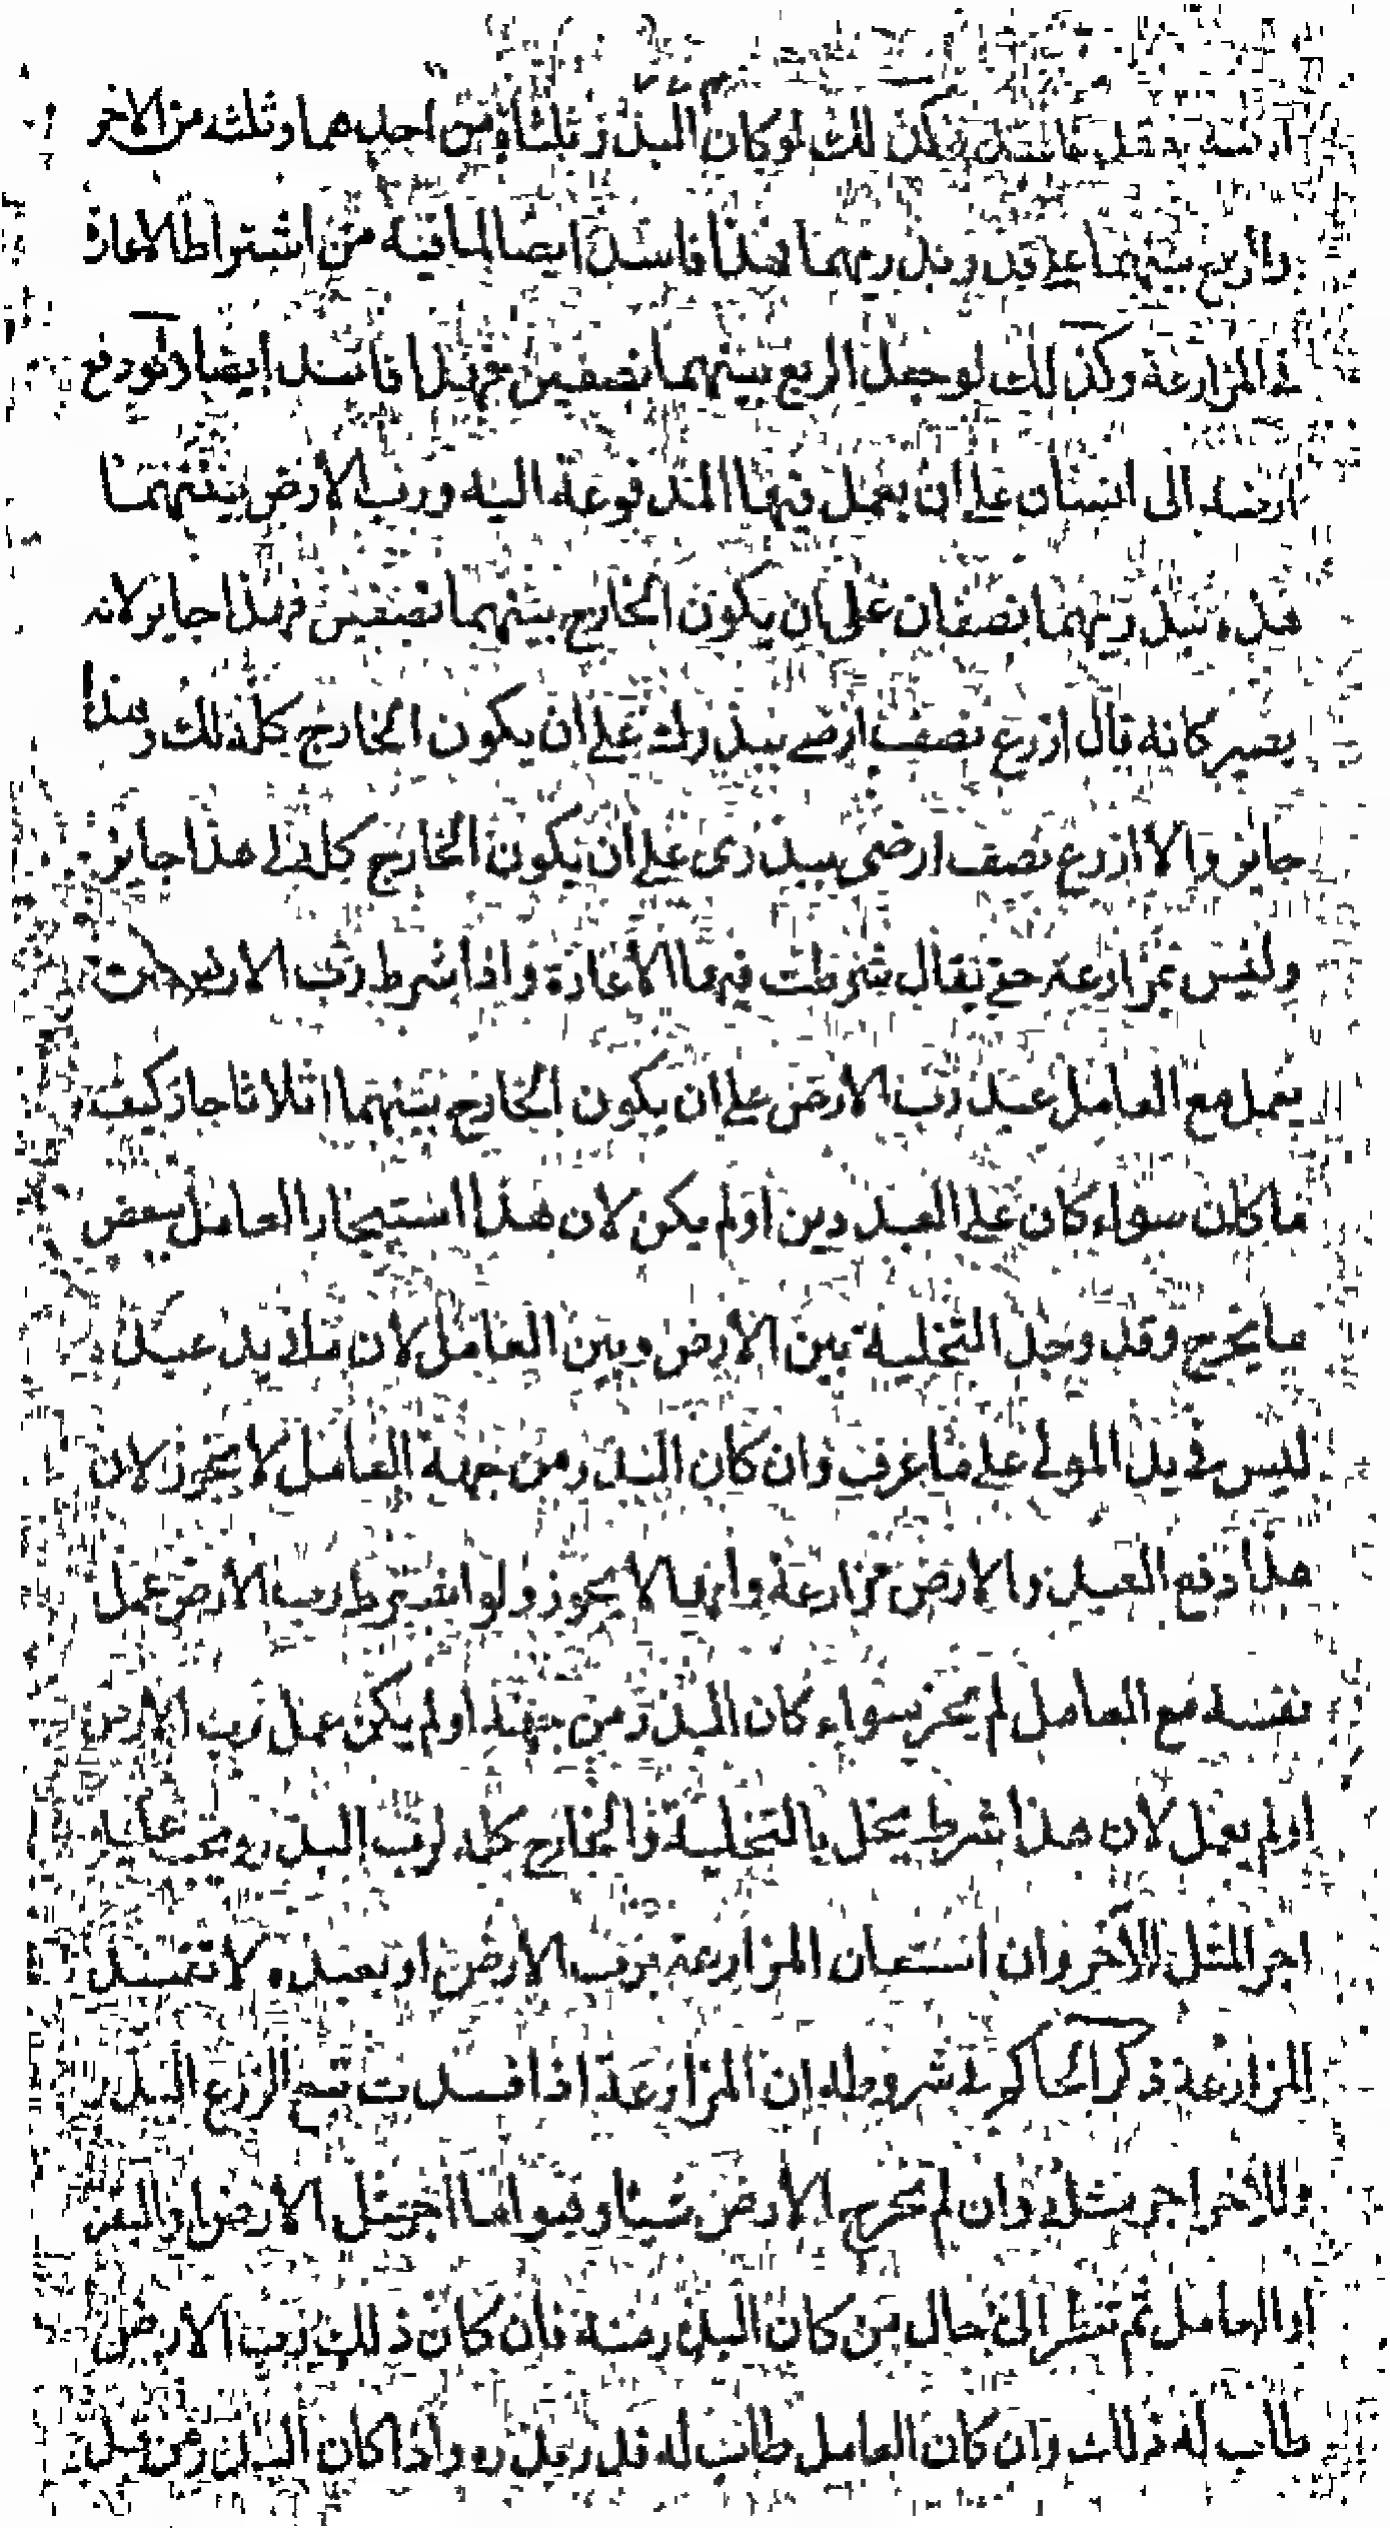 وكذلك لو كان البذر ثلثاه من احدهما وثلثه من الاخر
والريع بينهما على قدر بذرهما فهذا فاسد ايضا لما فيه من اشتراط الاعارة
في المزارعة وكذلك لو جعل الريع بينهما نصفين فهذا فاسد ايضا ولو دفع
ارضا الى انسان على ان يعمل فيها المدفوعة اليه ورب الارض بينهما
بذرهما نصفان على ان يكون الخارج بينهما نصفين فهذا جايز لانه
يصير كانه قال ازرع نصف ارضي ببذرك على ان يكون الخارج كله لك وهذا
جايز والا ازرع نصف ارضي ببذري على ان يكون الخارج كله لي هذا جايز
وليس بمزارعة حتى يقال شرطت فيها الاعارة واذا شرط رب الارض
يعمل مع العامل عبد رب الارض على ان يكون الخارج بينهما اثلاثا جاز كيف
ما كان سواء كان على العبد دين او لم يكن لان هذا استيجار العامل ببعض
ما يخرج وقد وجد التخلية بين الارض وبين العامل لان ما في يد عبده
ليس في يد المولى على ما عرف وان كان البذر من جهة العامل لا يجوز لان
هذا دفع العبد والارض مزارعة وانها لا يجوز ولو اشترط رب الارض عمل
نفسه مع العامل لم يجز سواء كان البذر من جهته او لم يكن عمل رب الارض
او لم يعمل لان هذا شرط يخل بالتخلية والخارج كله لرب البذر ويجب عليه
اجر المثل للاخر وان استعان المزارعة برب الارض او بعبده لا تفسد
المزارعة ذكر الحاكم في شروطه ان المزارعة اذا فسدت تبع الزرع البذر
وللاخر اجر مثله وان لم تخرج الارض شيئا وهو اما اجر مثل الارض والبقر
او العامل ثم تنظر الى حال من كان البذر منه فان كان ذلك رب الارض
طاب له ذلك وان كان العامل طاب له قدر بذره واذا كان البذر من قبل